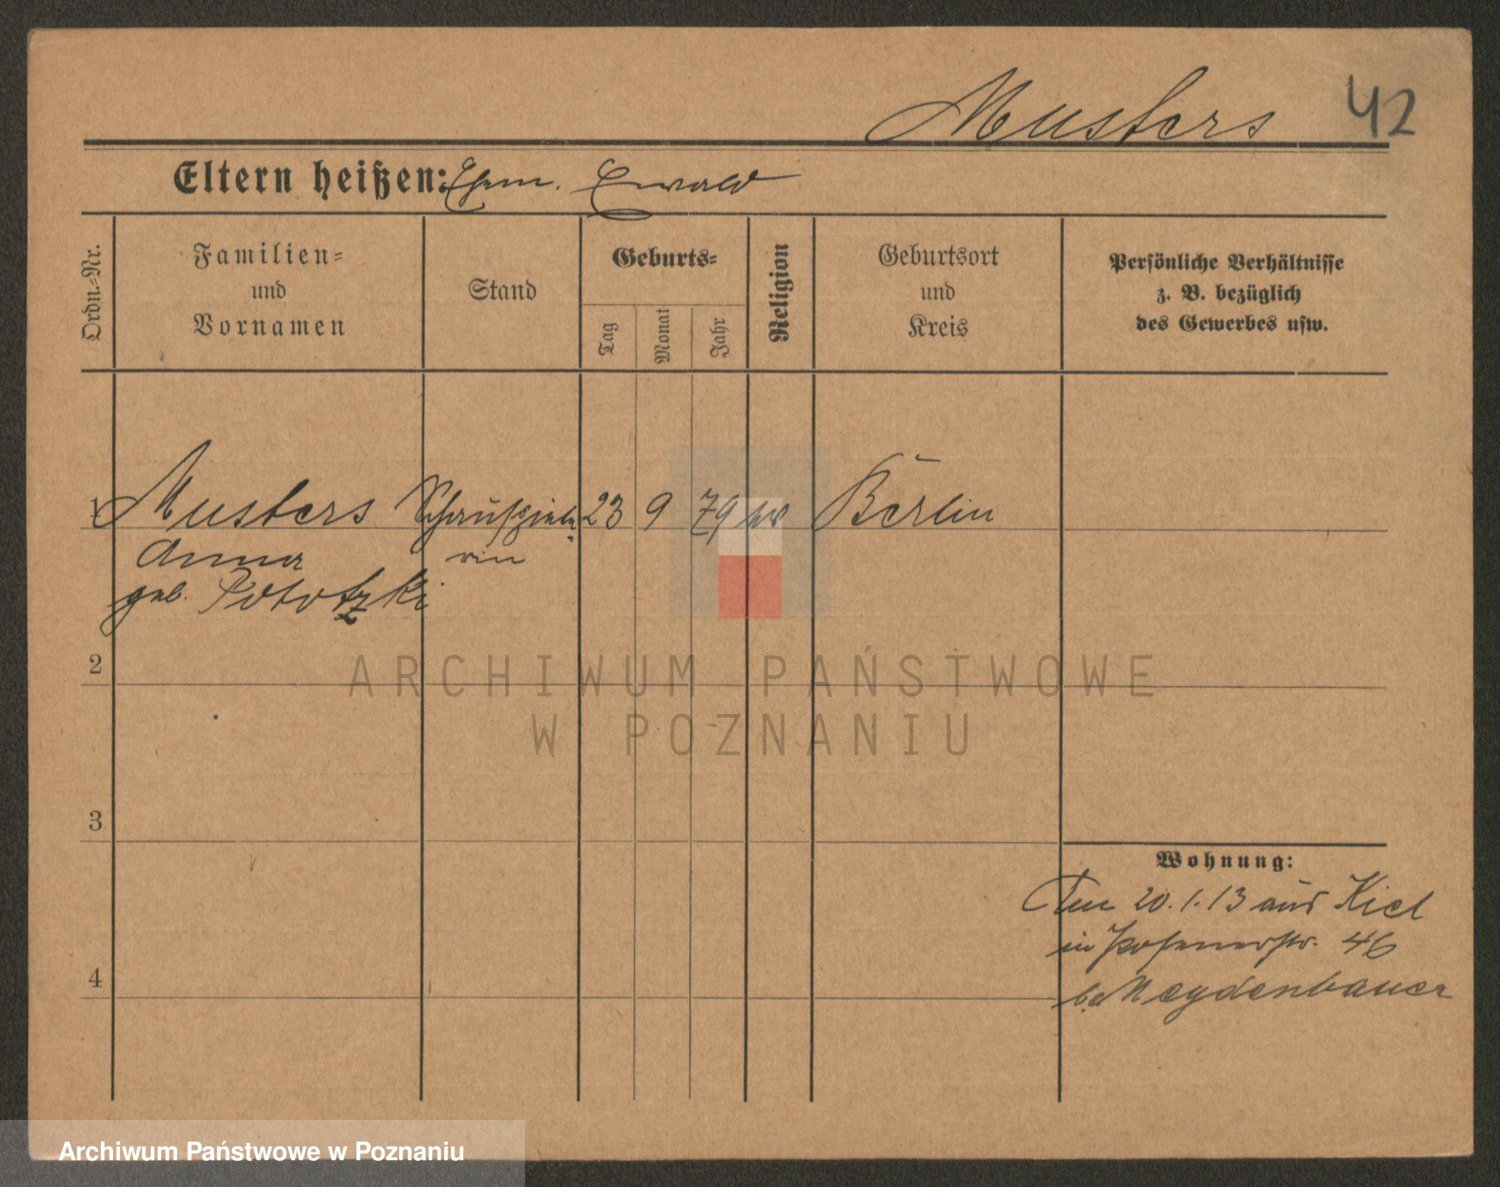 Musters 42
Eltern heißen: Ehem. Ewald
Ordn.-Nr.
Familien-
und
Vornamen
Stand
Geburts-
Tag
Monat
Jahr
Religion
Geburtsort
und
Kreis
Persönliche Verhältnisse
z. B. bezüglich
des Gewerbes usw.
1 Musters Schauspiele- 23 9 79 Berlin
Anna rin
geb. Pototzki
2
ARCHIWUM PAŃSTWOWE
W POZNANIU
3
Wohnung:
Am 20.1.13 aus Kiel
in Posenerstr. 46
4
b. Meydenbauer
Archiwum Państwowe w Poznaniu